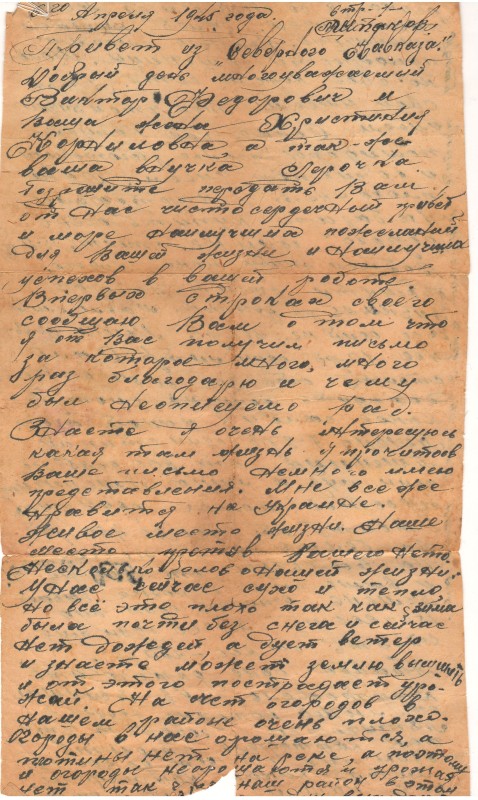 20 Апреля 1945 года. стр. 1
Привет из "Северного Кавказа."
Добрый день многоуважаемый
Виктор Федорович и
Ваша жена Христиния
Корниловна, а так-же
ваша внучка Лерочка
розрешите передать Вам,
от нас чистосердечный привет
и море наилучших пожеланий
для Вашей жизни и наилучших
успехов в вашей роботе.
Впервых строках своего
сообщаю Вам о том что
я от Вас получил письмо
за которое много, много
раз благодарю и чему
был неописуемо рад.
Знаете я очень интересуюсь
какая там жизнь и прочитав
Ваше письмо немного имею
представления. Мне все же
нравится на Украине.
Живое место жизни. Наше
место против Вашего нето.
Несколько слов о нашей жизни.
У нас сейчас сухо и тепло,
но всё это плохо так как зима
была почти без снега и сейчас
нет дождей а дует ветер
и знаете может землю высушить
и от этого пострадает уро-
жай. На счет огородов в
нашем районе очень плохо.
Огороды в нас орошаются, а
плотины нет на реке, а поэтому
и огороды неорошаются и урожая
нет так наш район в этом